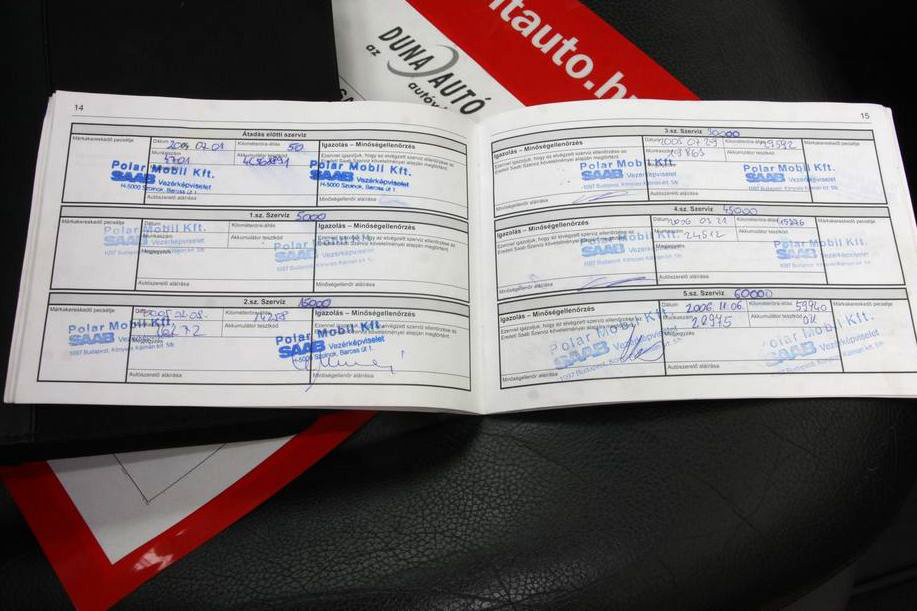 ltauto.hu
az
DUNA AUTÓ
14
Átadás előtti szerviz
Márkakereskedő pecsétje
Dátum
Kilométeróra-állás 50
Munkaszám
Akkumulátor tesztkód
5701
Igazolás – Minőségellenőrzés
Ezennel igazoljuk, hogy az elvégzett szerviz ellenőrzése az
Eredeti Saab Szerviz követelményei alapján megtörtént
Polar Mobil Kft.
SAAB Vezérképviselet
H-5000 Szolnok, Baross út 1.
Polar Mobil Kft.
SAAB Vezérképviselet
H-5000 Szolnok, Baross út 1.
Autószerelő aláírása
Minőségellenőr aláírása
1.sz. Szerviz 5000
Márkakereskedő pecsétje
Dátum
Kilométeróra-állás
Munkaszám
Akkumulátor tesztkód
Megjegyzés
Igazolás – Minőségellenőrzés
Ezennel igazoljuk, hogy az elvégzett szerviz ellenőrzése az
Eredeti Saab Szerviz követelményei alapján megtörtént
Polar Mobil Kft.
SAAB Vezérképviselet
1097 Budapest, Könyves Kálmán krt. 5/b
Autószerelő aláírása
Minőségellenőr aláírása
2.sz. Szerviz 15000
Márkakereskedő pecsétje
Kilométeróra-állás
Akkumulátor tesztkód
Igazolás – Minőségellenőrzés
Polar Mobil Kft.
SAAB Vezérképviselet
1097 Budapest, Könyves Kálmán krt. 5/b
Polar Mobil Kft.
SAAB Vezérképviselet
H-5000 Szolnok, Baross út 1.
Autószerelő aláírása
Minőségellenőr aláírása
15
3.sz. Szerviz 30000
Igazolás – Minőségellenőrzés
Ezennel igazoljuk, hogy az elvégzett szerviz ellenőrzése az
Eredeti Saab Szerviz követelményei alapján megtörtént
Dátum 2005 07 29
Kilométeróra-állás
Munkaszám
Akkumulátor tesztkód
Márkakereskedő pecsétje
Polar Mobil Kft.
SAAB Vezérképviselet
1097 Budapest, Könyves Kálmán krt. 5/b
Polar Mobil Kft.
SAAB Vezérképviselet
1097 Budapest, Könyves Kálmán krt. 5/b
Minőségellenőr aláírása
Autószerelő aláírása
4.sz. Szerviz 45000
Igazolás – Minőségellenőrzés
Ezennel igazoljuk, hogy az elvégzett szerviz ellenőrzése az
Eredeti Saab Szerviz követelményei alapján megtörtént
Dátum
Kilométeróra-állás
Munkaszám 24512
Akkumulátor tesztkód
Megjegyzés
Márkakereskedő pecsétje
Polar Mobil Kft.
SAAB Vezérképviselet
Polar Mobil Kft.
SAAB Vezérképviselet
1097 Budapest, Könyves Kálmán krt. 5/b
Minőségellenőr aláírása
Autószerelő aláírása
5.sz. Szerviz 60000
Igazolás – Minőségellenőrzés
Ezennel igazoljuk, hogy az elvégzett szerviz ellenőrzése az
Eredeti Saab Szerviz követelményei alapján megtörtént
Dátum 2006. 11. 06.
Kilométeróra-állás 59940
Munkaszám 28945
Akkumulátor tesztkód
Megjegyzés
Márkakereskedő pecsétje
Polar Mobil Kft.
SAAB Vezérképviselet
Polar Mobil Kft.
SAAB Vezérképviselet
Minőségellenőr aláírása
Autószerelő aláírása